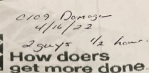 C109 Damage
4/16/22
2 guys 1/2 hour
How doers
get more done